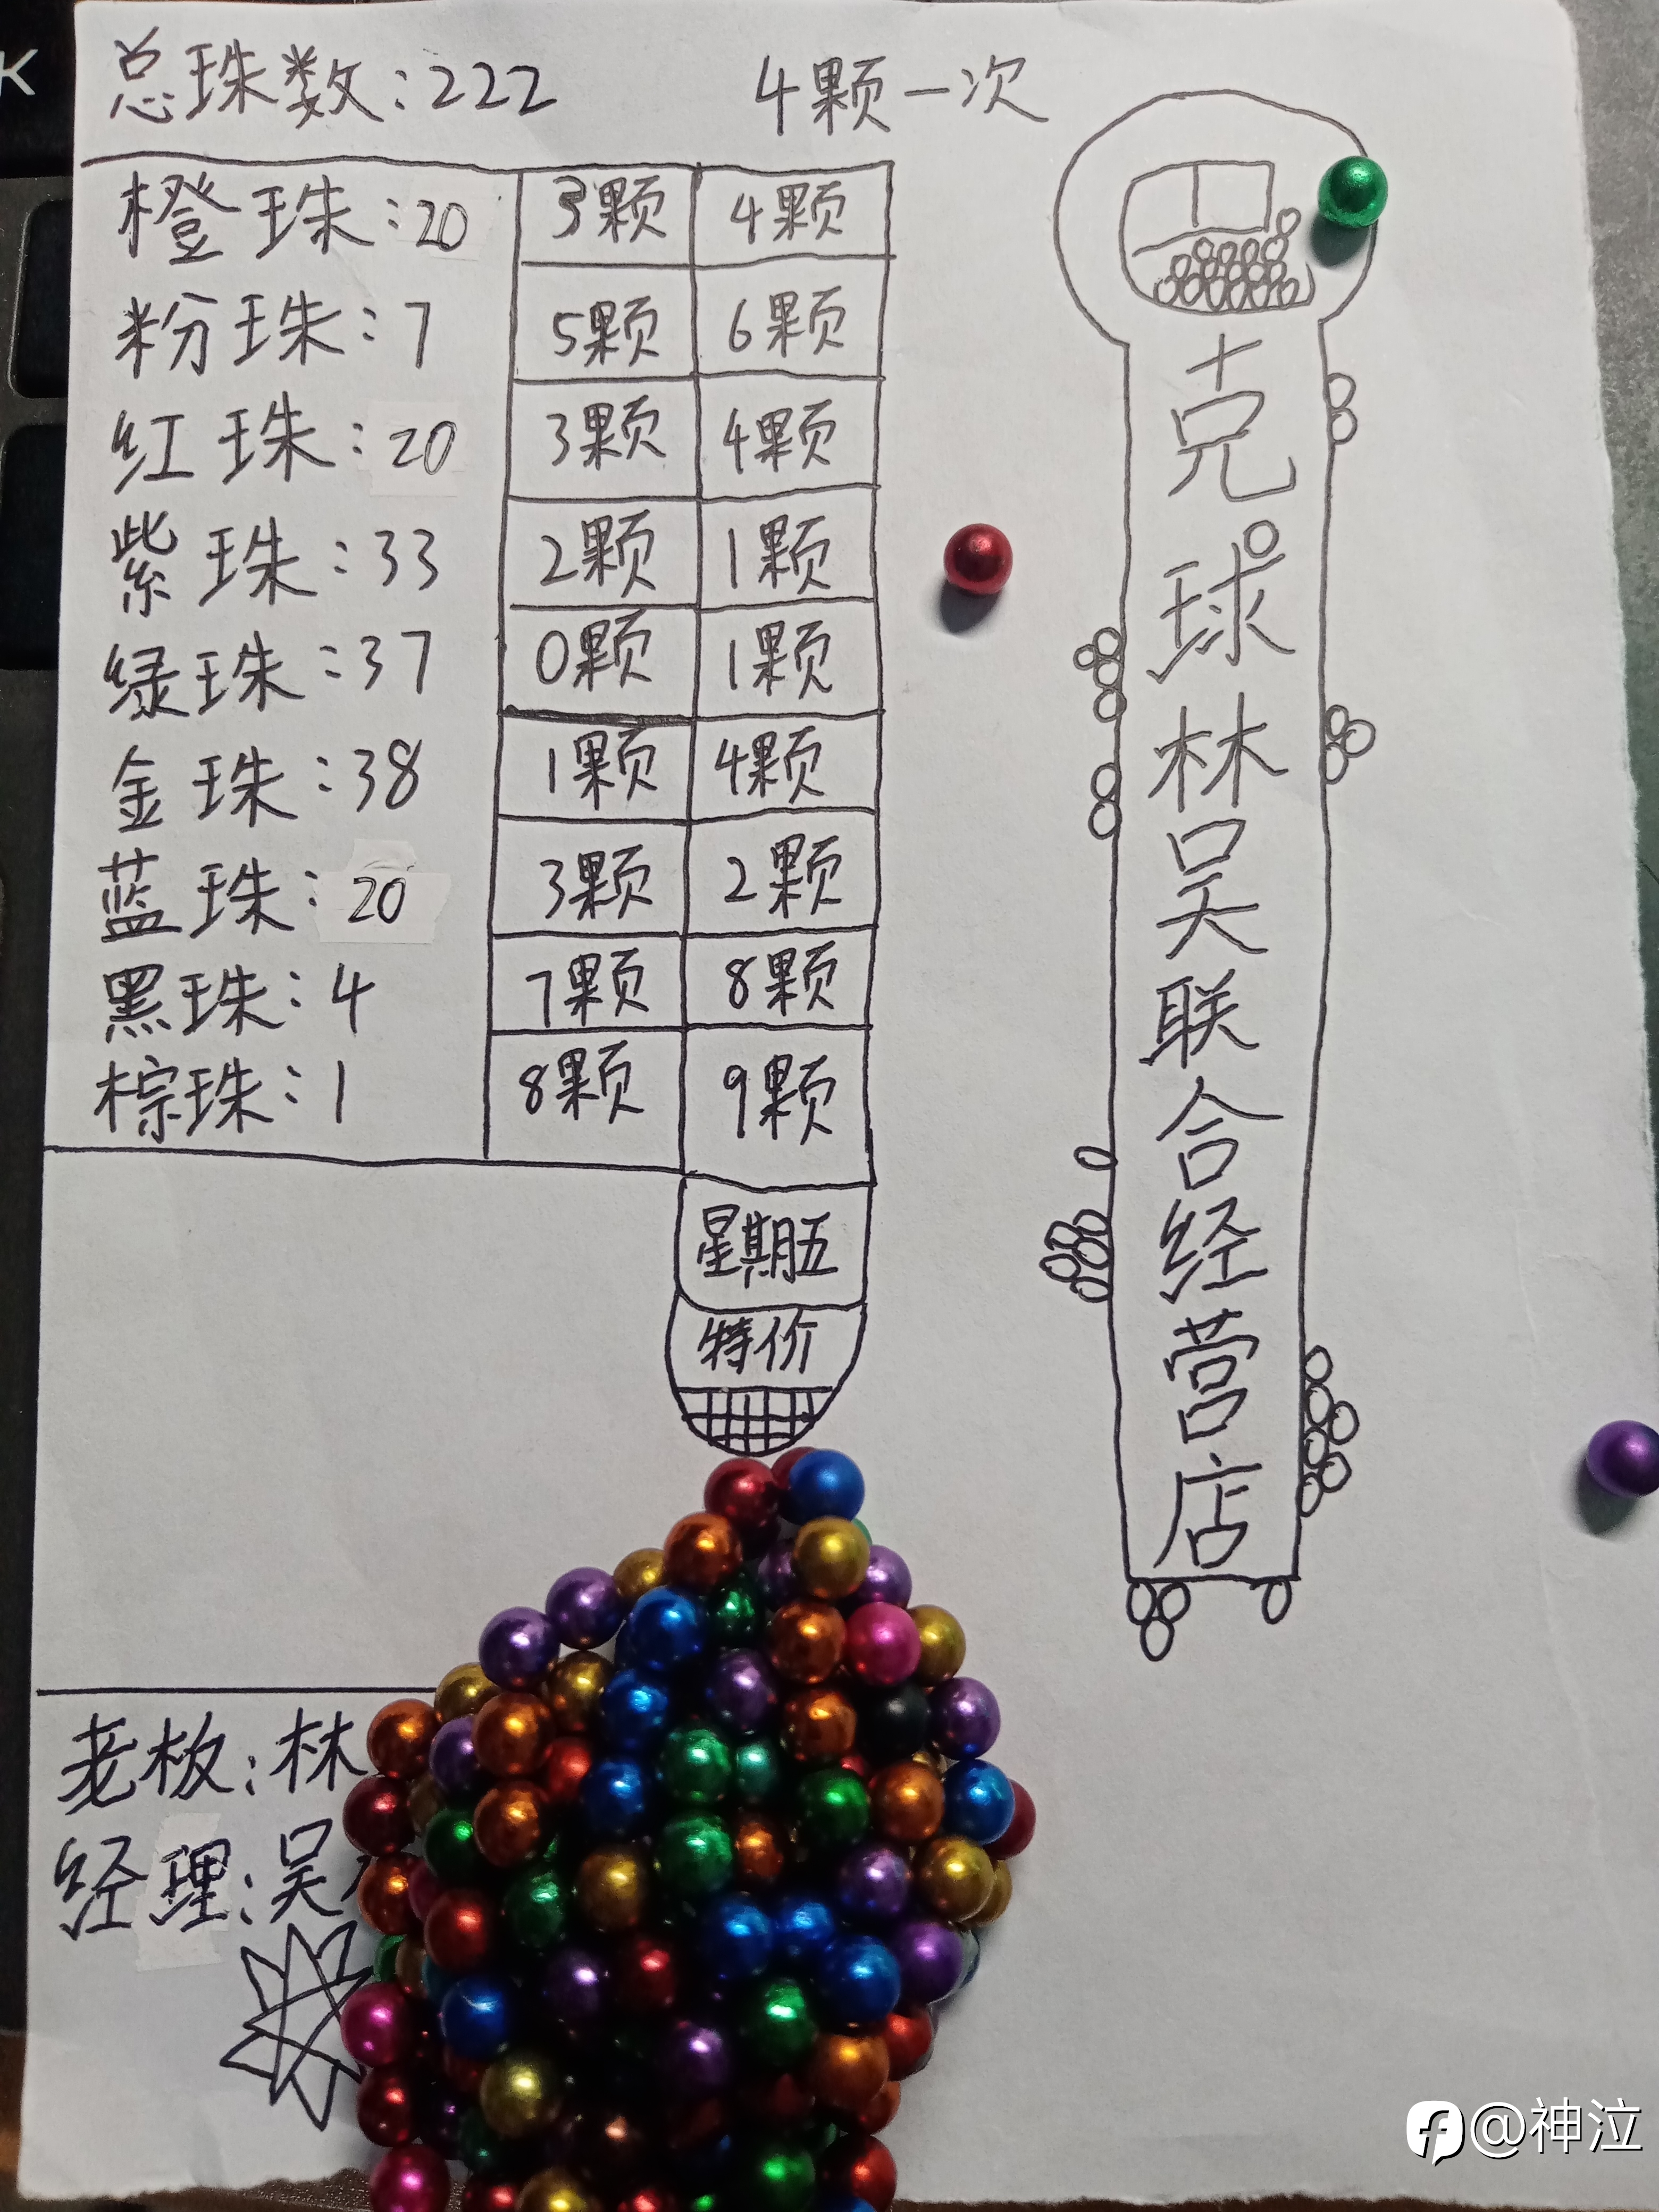 K
总珠数:222 4颗一次
橙珠:20 3颗 4颗
粉珠:7 5颗 6颗
红珠:20 3颗 4颗
紫珠:33 2颗 1颗
绿珠:37 0颗 1颗
金珠:38 1颗 4颗
蓝珠:20 3颗 2颗
黑珠:4 7颗 8颗
棕珠:1 8颗 9颗
星期五
特价
克球林吴联合经营店
老板:林
经理:吴
@神泣